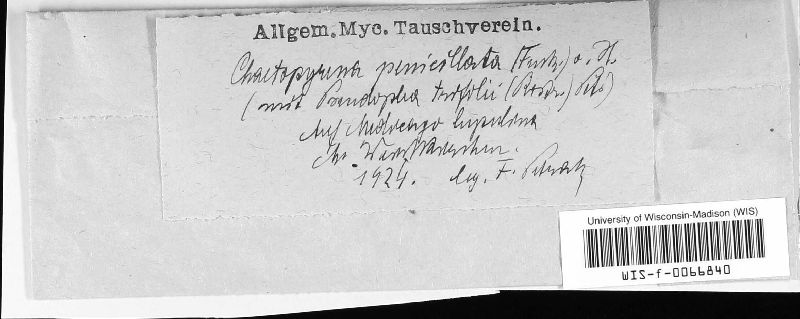 Allgem. Myc. Tauschverein.
Chaetopyrena penicillata (Fuck.) v. H.
(mit Pseudopeziza trifolii
Auf Medicago lupulina
1924. leg. F. Petrak
University of Wisconsin-Madison (WIS)
WIS-f-0066840